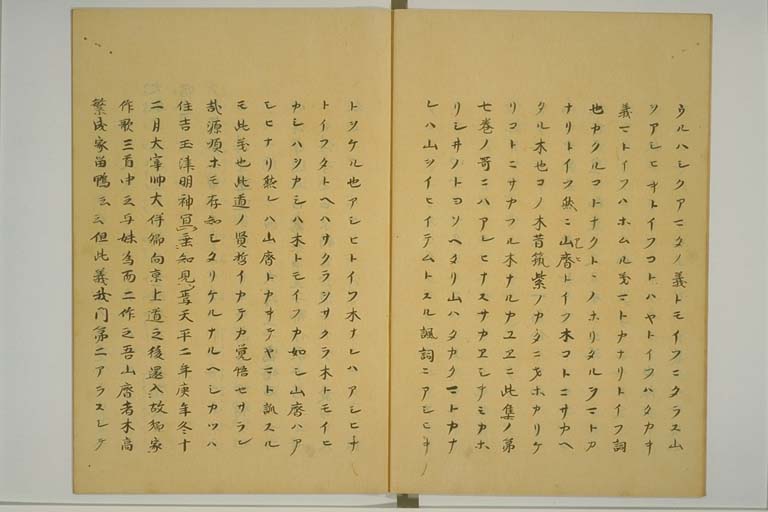 ウルハシクアマタノ義トモイフニタラス山
ツアシヒキトイフコトハヤトイフハタカキ
義マトイフハホムル義マトカナリトイフ詞
也カクルコトナクトヽノホリタルヲマトカ
ナリトイフ然ニ山麿トイフ木コトニサカヘ
タル木也コノ木昔筑紫ノカタニオホカリケ
リコトニサカフル木ナルカユヱニ此集ノ第
七巻ノ哥ニハアシヒナスサカヱシキミカホ
リシ井ノトヨソヘタリ山ハタカクマトカナ
レハ山ツイヒイテムトスル諷詞ニアシヒキノ
トツケル也アシヒトイフ木ナレハアシヒキ
トイフタトヘハサクラヲサクラ木トモイヒ
カシハヲカシハ木トモイフカ如シ山麿ハア
シヒナリ然レハ山麿トカキテヤマト訓スル
モ此義也此道ノ賢哲イカテカ覚悟セサラン
哉源順ホモ存知シタリケルナルヘシカツハ
住吉玉津明神冥垂知見焉天平二年庚午冬十
二月大宰帥大伴卿向京上道之後還入故郷家
作歌三首中之与妹為而二作之吾山麿者木高
繁成家留鴨云云但此義我門第ニアラスシテ